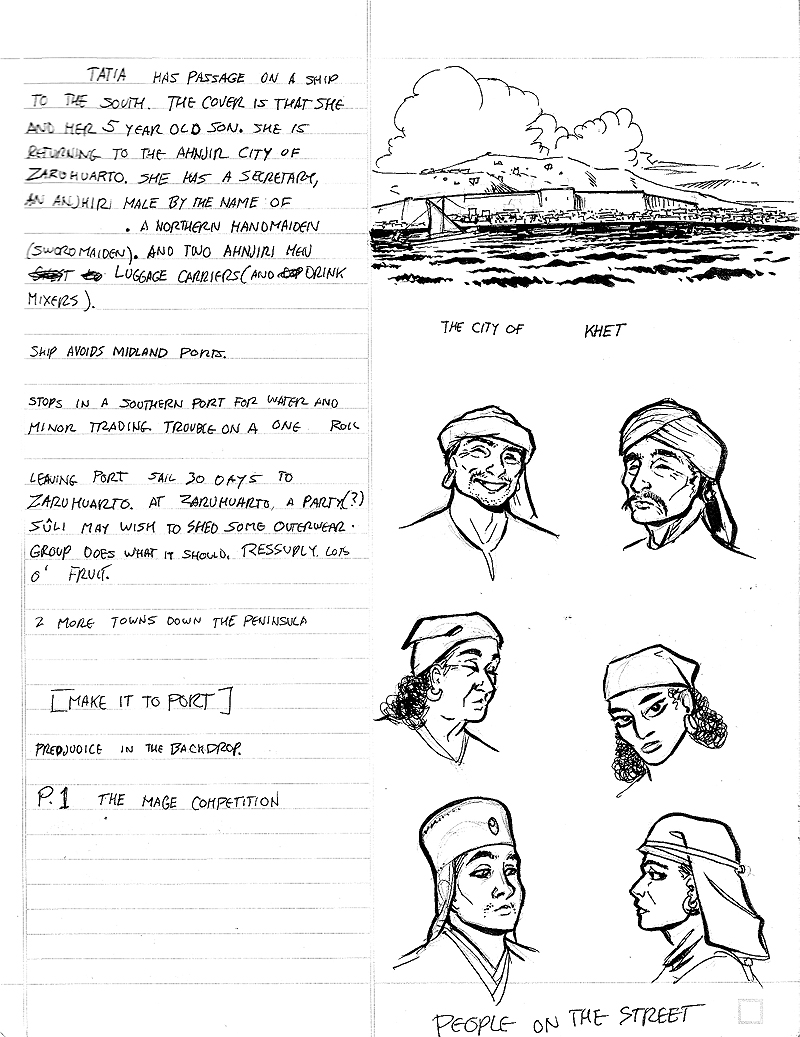 TATIA HAS PASSAGE ON A SHIP
TO THE SOUTH. THE COVER IS THAT SHE
AND HER 5 YEAR OLD SON. SHE IS
RETURNING TO THE AHNJIR CITY OF
ZARUHUARTO. SHE HAS A SECRETARY,
AN ANJHIRI MALE BY THE NAME OF
. A NORTHERN HANDMAIDEN
(SWORDMAIDEN). AND TWO AHNJIRI MEN
LUGGAGE CARRIERS (AND DRINK
MIXERS).
SHIP AVOIDS MIDLAND PORTS.
STOPS IN A SOUTHERN PORT FOR WATER AND
MINOR TRADING. TROUBLE ON A ONE ROLL
LEAVING PORT SAIL 30 DAYS TO
ZARUHUARTO. AT ZARUHUARTO, A PARTY(?)
SÛLI MAY WISH TO SHED SOME OUTERWEAR.
GROUP DOES WHAT IT SHOULD. RESSUPLY. LOTS
O' FRUIT.
2 MORE TOWNS DOWN THE PENINSULA
[MAKE IT TO PORT]
PREDJUDICE IN THE BACKDROP.
P.1 THE MAGE COMPETITION
THE CITY OF KHET
PEOPLE ON THE STREET